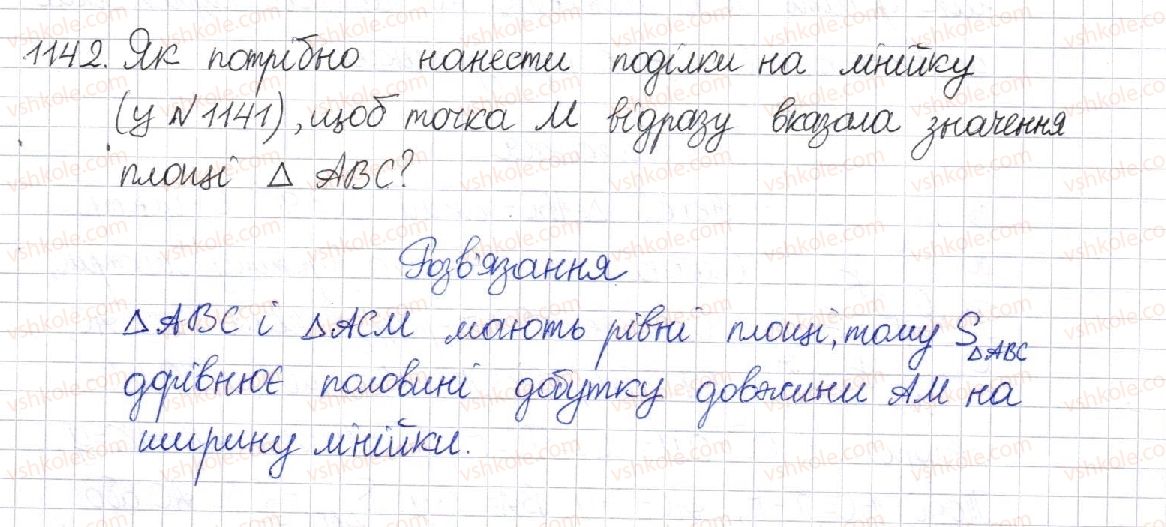 1142. Як потрібно нанести поділки на лінійку
(у №1141), щоб точка М відразу вказала значення
площі △ ABC?
Розв'язання
△ABC і △ACM мають рівні площі, тому S△ABC
дорівнює половині добутку довжини AM на
ширину лінійки.